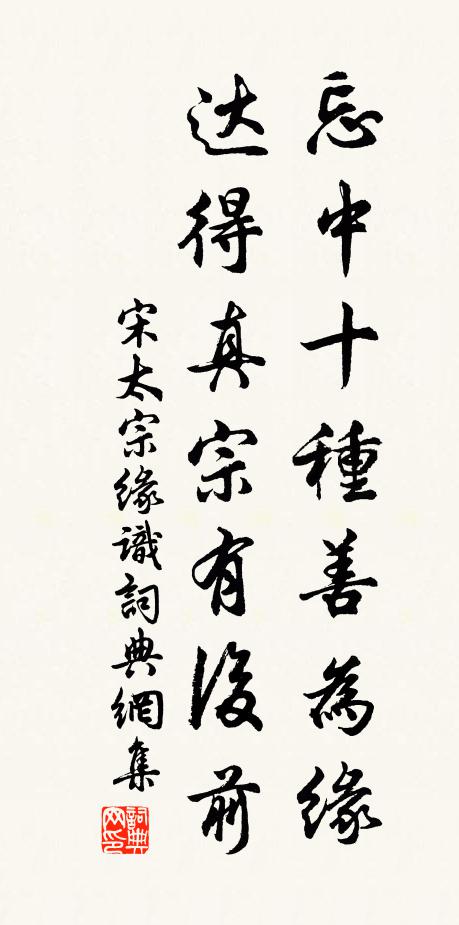 忘中十種善為緣
达得真宗有後前
宋太宗緣識詞典網集
詞典网印